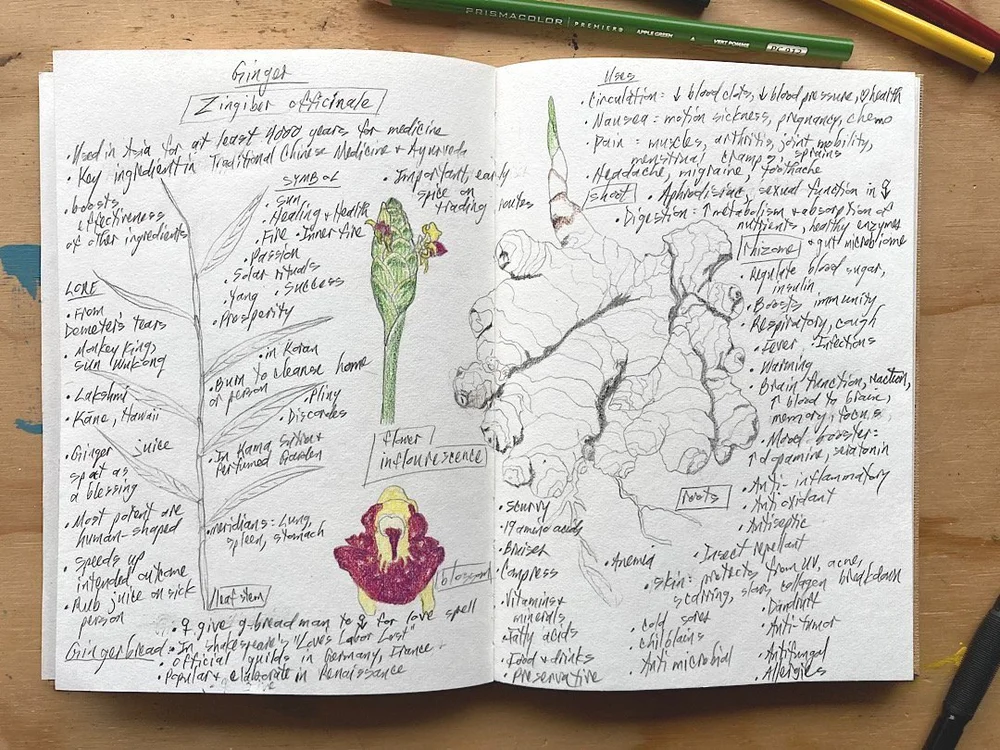 PRISMACOLOR PREMIER® APPLE GREEN VERT POMME PC 912
Ginger
Zingiber officinale
• Used in Asia for at least 4000 years for medicine
• Key ingredient in Traditional Chinese Medicine + Ayurveda
• boosts
effectiveness
of other ingredients
SYMBOL
• Sun
• Healing + Health
• Fire • Inner fire
• Passion
• Solar rituals
• Yang • Success
• Prosperity
• Important, early
spice on
trading routes
LORE
• From
Demeter's tears
• Monkey King,
Sun Wukong
• Lakshmi
• Kāne, Hawaii
• Ginger juice
spat as
a blessing
• Most potent are
human-shaped
• Speeds up
intended outcome
• Rub juice on sick
person
• in Koran
• Burn to cleanse home
or person
• Pliny
• Discordes
• In Kama Sutra +
Perfumed Garden
• meridians: Lung,
spleen, stomach
leaf stem
flower
inflourescence
blossom
• ♀ give g-bread man to for love spell
Gingerbread: • In Shakespeare's "Loves Labor Lost"
• Official guilds in Germany, France +
• Popular + elaborate in Renaissance
Uses
• Circulation: ↓ blood clots, ↓ blood pressure, ♡ health
• Nausea: motion sickness, pregnancy, chemo
• Pain: muscles, arthritis, joint mobility,
menstrual cramps, sprains
• Headache, migraine, toothache
shoot
• Aphrodisiac, sexual function in
• Digestion: ↑ metabolism + absorption of
nutrients, healthy enzymes
+ gut microbiome
rhizome
• Regulate blood sugar,
insulin
• Boosts immunity
• Respiratory, cough
• Fever • Infections
• Warming
• Brain function, reaction,
↑ blood to brain,
memory, focus
• Mood booster:
↑ dopamine, seratonin
• Anti-inflammatory
• Antioxidant
• Antiseptic
roots
• Scurvy
• 19 amino acids
• Bruises
• Compress
• Vitamins +
minerals
• Fatty acids
• Food + drinks
• Preservative
• Anemia
• Insect repellant
• Skin: protects from UV, acne,
scarring, slows collagen breakdown
• cold sores
• chilblains
• Anti microbial
• Dandruff
• Anti-tumor
• Antifungal
• Allergies